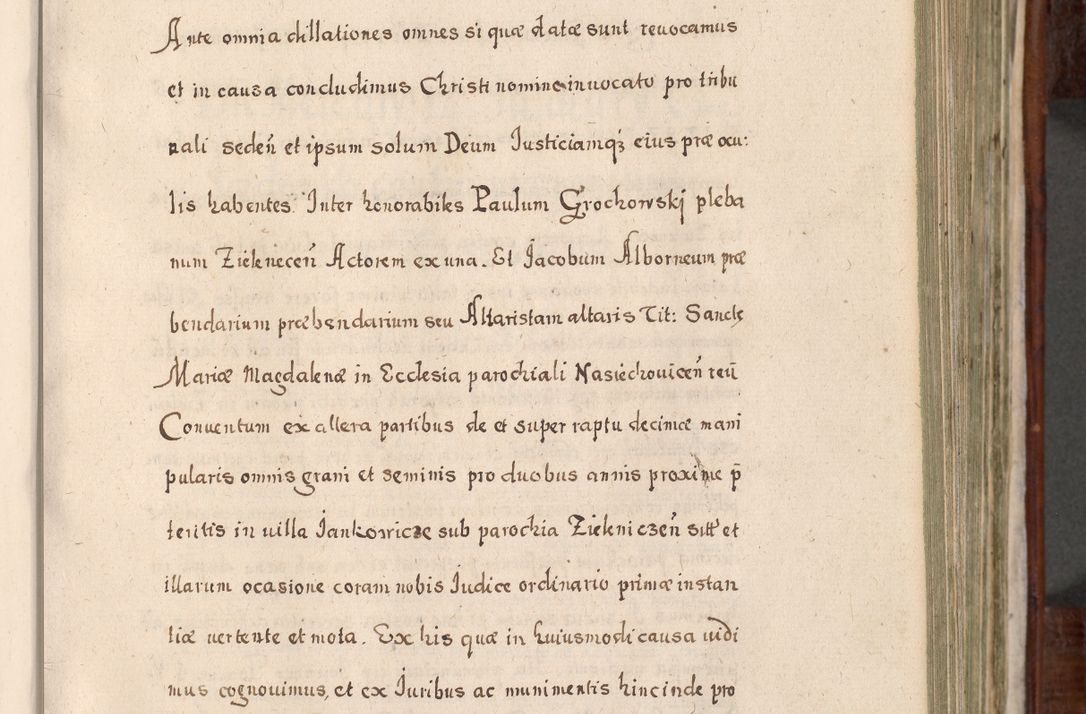 Ante omnia dillationes omnes si quæ datæ sunt reuocamus
et in causa concludimus Christi nomine inuocato pro tribu
nali sedeñ et ipsum solum Deum Iusticiamq₃ eius præ ocu:
lis habentes. Inter honorabiles Paulum Grochowskj pleba
num Zieleneceñ Actorem ex una. Et Jacobum Alborneum præ
bendarium præbendarium seu Altaristam altaris Tit: Sanctę
Mariæ Magdalenæ in Ecclesia parochiali Nasiechouiceñ reū
Conuentum ex altera partibus de et super raptu decimæ mani
pularis omnis grani et seminis pro duobus annis proxime p̄
teritis in uilla Jankowicze sub parochia Zieleniczeñ sitt̃ et
illarum ocasione coram nobis Iudice ordinario primæ instan
tiæ vertente et mota. Ex his quæ in huiusmodi causa uidi
mus cognouimus, et ex Iuribus ac munimentis hincinde pro